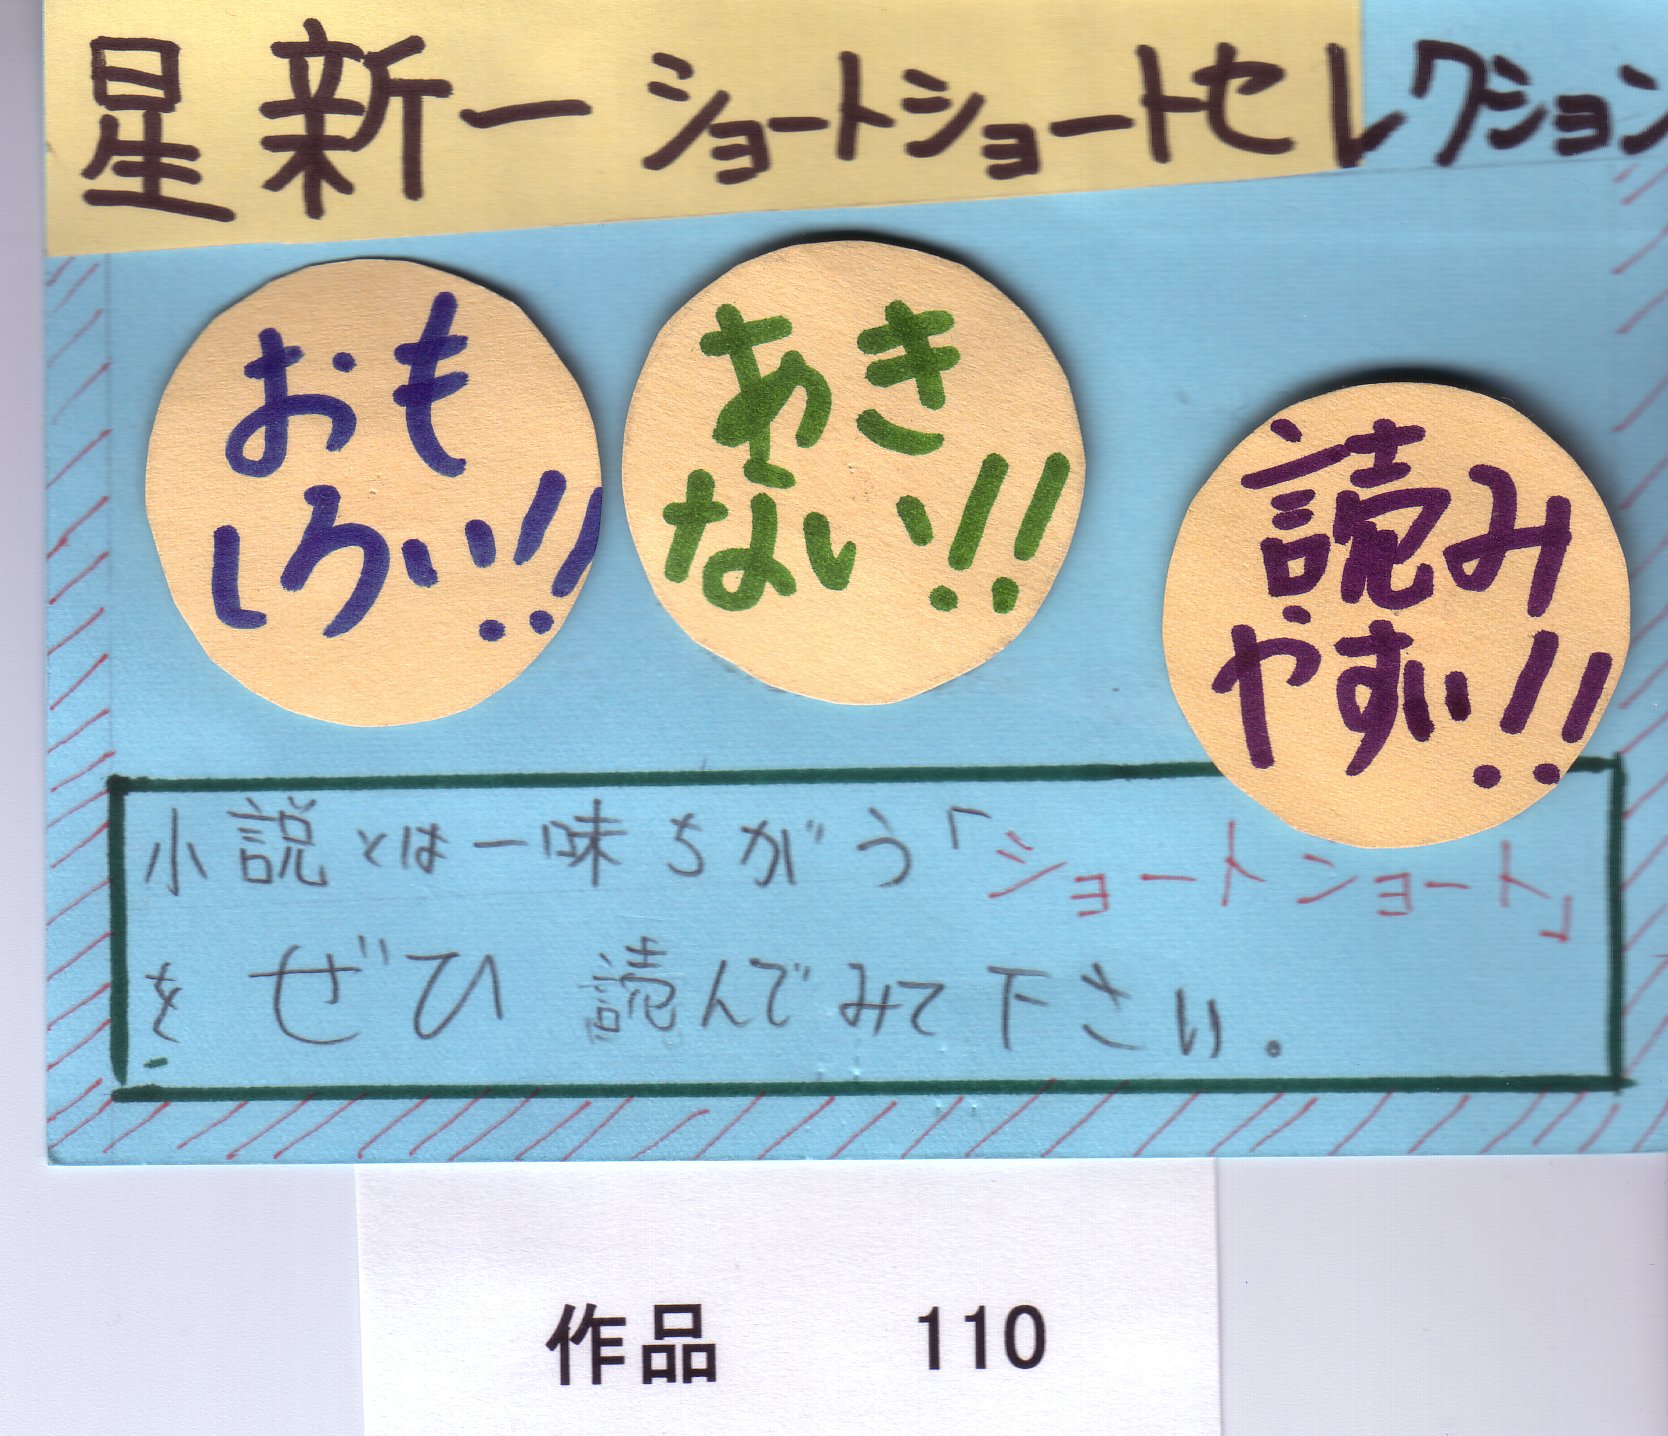 星新一 ショートショートセレクション
おも
しろい!!
あき
ない!!
読み
やすい!!
小説とは一味ちがう「ショートショート」
をぜひ読んでみて下さい。
作品 110